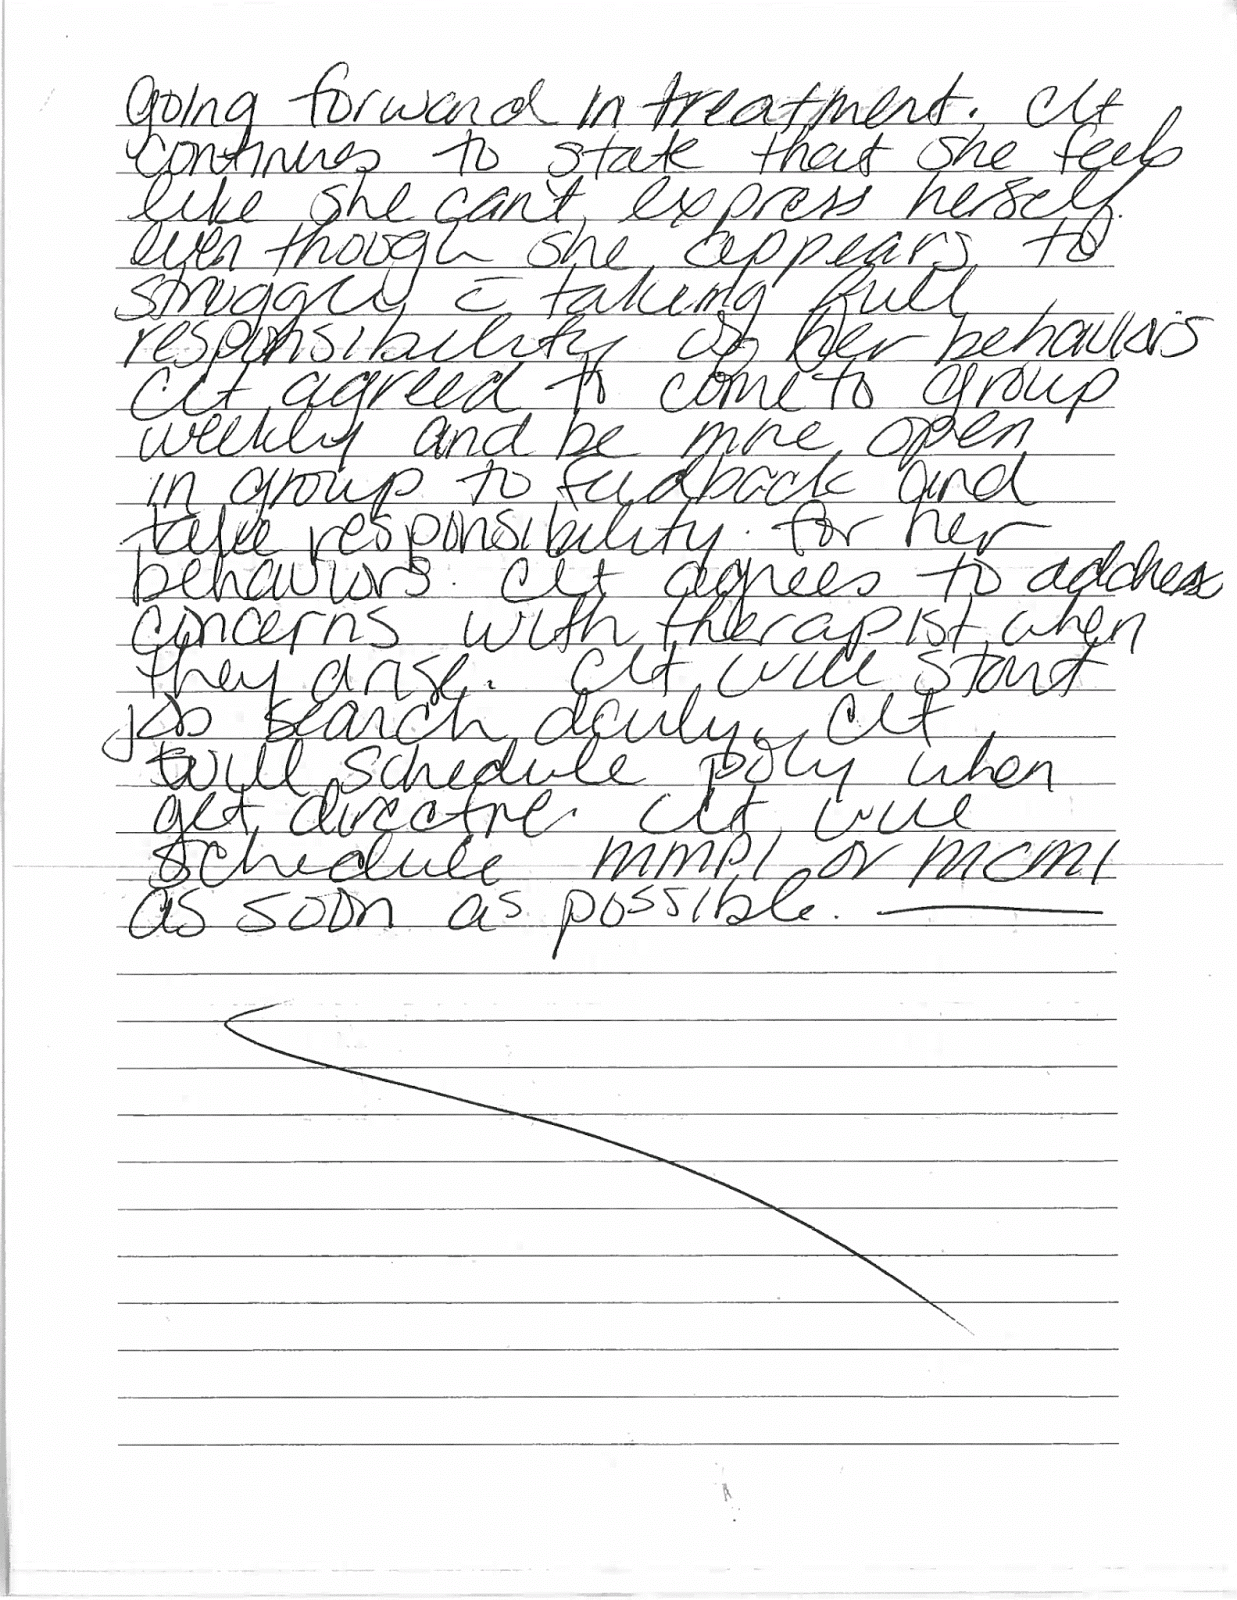 going forward in treatment. Clt
continues to state that she feels
like she can't express herself
even though she appears to
struggle c̄ taking full
responsibility of her behaviors
Clt agreed to come to group
weekly and be more open
in group to feedback and
take responsibility for her
behaviors. Clt agrees to address
concerns with therapist when
they arise. Clt will start
job search daily. Clt
will schedule poly when
get directive. Clt will
schedule MMPI or MCMI
as soon as possible.